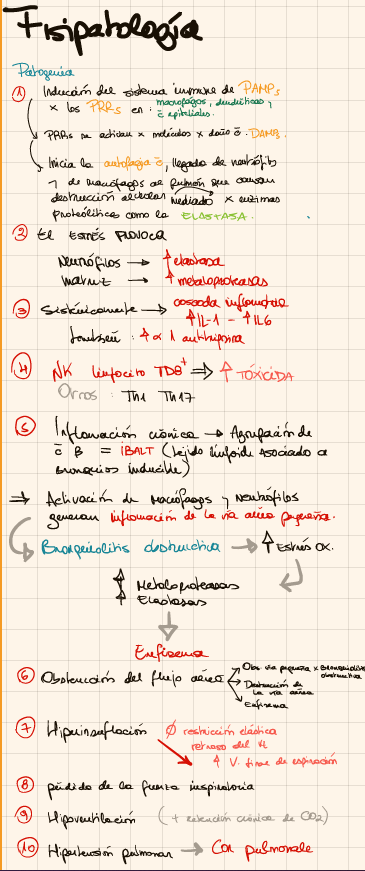 Fisiopatología
Patogenia
① Inducción del sistema inmune de PAMPs
x los PRRs en: macrófagos, dendríticas y
c̄ epiteliales.
PRRs se activan x moléculas x daño c̄. DAMPs.
Inicia la autofagia c̄, llegado de neutrófilos
y de macrófagos al pulmón que causan
destrucción alveolar mediado x enzimas
proteolíticas como la ELASTASA.
② El ESTRÉS PROVOCA
Neutrófilos → ↑ elastasa
Matriz → ↑ metaloproteasas
③ Sistémicamente → cascada inflamatoria
↑ IL-1 - ↑ IL6
también: ↑ α 1 antitripsina
④ NK linfocito TD8+ ⇒ ↑ TÓXICIDA
Otros: Th1 Th17
⑤ Inflamación crónica → Agrupación de
c̄ B = iBALT (tejido linfoide asociado a
bronquios inducible)
⇒ Activación de Macrófagos y Neutrófilos
generan inflamación de la vía aérea pequeña.
Bronquiolitis obstructiva → ↑ Estrés OX.
↑ Metaloproteasas
↑ Elastasas
Enfisema
⑥ Obstrucción del flujo aéreo
Obs vía pequeña x Bronquiolitis
obstructiva
Destrucción de
la vía aérea
Enfisema
⑦ Hiperinsuflación Ø restricción elástica
retraso del
↑ V. final de espiración
⑧ pérdida de la fuerza inspiratoria
⑨ Hipoventilación (+ retención crónica de CO2)
⑩ Hipertensión pulmonar → Cor pulmonale